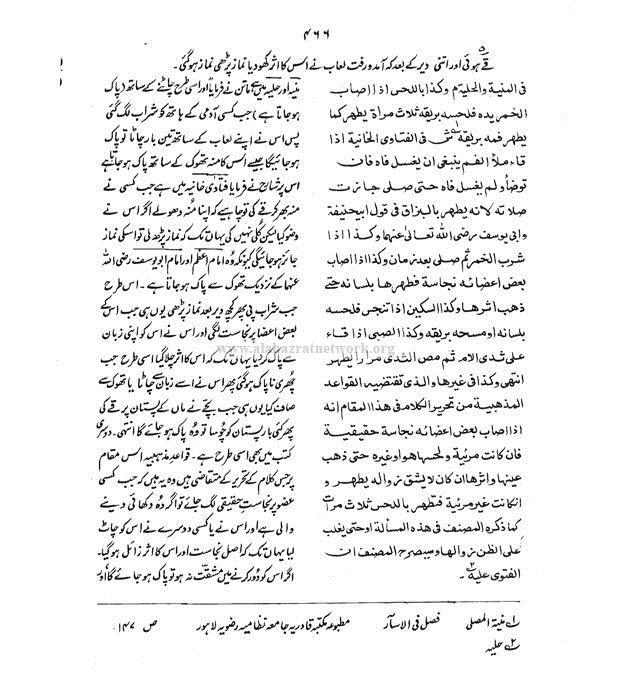 ۴۶۶
قے ہوئی اور اتنی دیر کے بعد کہ آمد ورفت لعاب نے اس کا اثر کھو دیا نماز پڑھی نماز ہوگئی۔
فی المنیۃ والحلیۃ م وکذا باللحس اذا اصاب
الخمر یدہ فلحسہ بریقہ ثلاث مراۃ یطھر کما
یطھر فمہ بریقہ ش فی الفتاوی الخانیۃ اذا
قاء ملأ الفم ینبغی ان یغسل فاہ فان
توضأ ولم یغسل فاہ حتی صلی جازت
صلاتہ لانہ یطھر بالبزاق فی قول ابی حنیفۃ
وابی یوسف رضی اللہ تعالیٰ عنہما وکذا اذا
شرب الخمر ثم صلی بعد زمان وکذا اذا اصاب
بعض اعضائہ نجاسۃ فطھرھا بلسانہ حتی
ذھب اثرھا وکذا السکین اذا تنجس فلحسہ
بلسانہ او مسحہ بریقہ وکذا الصبی اذا قاء
علی ثدی الام ثم مص الثدی مرارا یطھر
انتھی وکذا فی غیرھا والذی تقتضیہ القواعد
المذھبیۃ من تحریر الکلام فی ھذا المقام انہ
اذا اصاب بعض اعضائہ نجاسۃ حقیقیۃ
فان کانت مرئیۃ ولحسھا ھو او غیرہ حتی ذھب
عینھا واثرھا ان کان لا یشق زوالہ یطھر و
ان کانت غیر مرئیۃ فتطھر باللحس ثلاث مرات
کما ذکرہ المصنف فی ھذہ المسألۃ او حتی یغلب
علی الظن زوالھا وسیصرح المصنف ان
الفتوی علیہ ۲۔
منیہ اور حلیہ میں ہے ماتن نے فرمایا اور اسی طرح چاٹنے کے ساتھ (پاک
ہو جاتا ہے) جب کسی آدمی کے ہاتھ کو شراب لگ گئی
پس اس نے اپنے لعاب کے ساتھ تین بار چاٹا تو پاک
ہو جائیگا جیسے اس کا منہ تھوک کے ساتھ پاک ہو جاتا ہے
اس پر شارح نے فرمایا فتاوی خانیہ میں ہے جب کسی نے
منہ بھر کر قے کی تو چاہیے کہ اپنا منہ دھولے اگر اس نے
وضو کیا لیکن کُلی نہیں کی یہاں تک کہ نماز پڑھ لی تو اسکی نماز
جائز ہو جائیگی کیونکہ وہ امام اعظم اور امام ابو یوسف رضی اللہ
عنہما کے نزدیک تھوک سے پاک ہو جاتا ہے۔ اس طرح
جب شراب پی پھر کچھ دیر بعد نماز پڑھی یوں ہی جب اس کے
بعض اعضاء پر نجاست لگی اور اس نے اس کو اپنی زبان
سے پاک کر دیا یہاں تک کہ اس کا اثر چلا گیا اسی طرح جب
چھری ناپاک ہو گئی پھر اس نے اسے زبان سے چاٹا یا تھوک سے
صاف کیا یوں ہی جب بچے نے ماں کے پستان پر قے کی
پھر کئی بار پستان کو چُوسا تو وہ پاک ہو جائے گا انتہی۔ دوسری
کتب میں بھی اسی طرح ہے۔ قواعدِ مذہبیہ اس مقام
پر جس کلام کے تحریر کے متقاضی ہیں وہ یہ ہیں کہ جب کسی
عضو پر نجاستِ حقیقی لگ جائے تو اگر وہ دکھائی دینے
والی ہے اور اس نے یا کسی دوسرے نے اس کو چاٹ
لیا یہاں تک کہ اصل نجاست اور اس کا اثر زائل ہو گیا۔
اگر اس کو دُور کرنے میں مشقت نہ ہو تو پاک ہو جائے گا اور
www.alahazratnetwork.org
۱؎ منیۃ المصلی فصل فی الاسآر مطبوعہ مکتبہ قادریہ جامعہ نظامیہ رضویہ لاہور ص ۱۴۷
۲؎ حلیہ